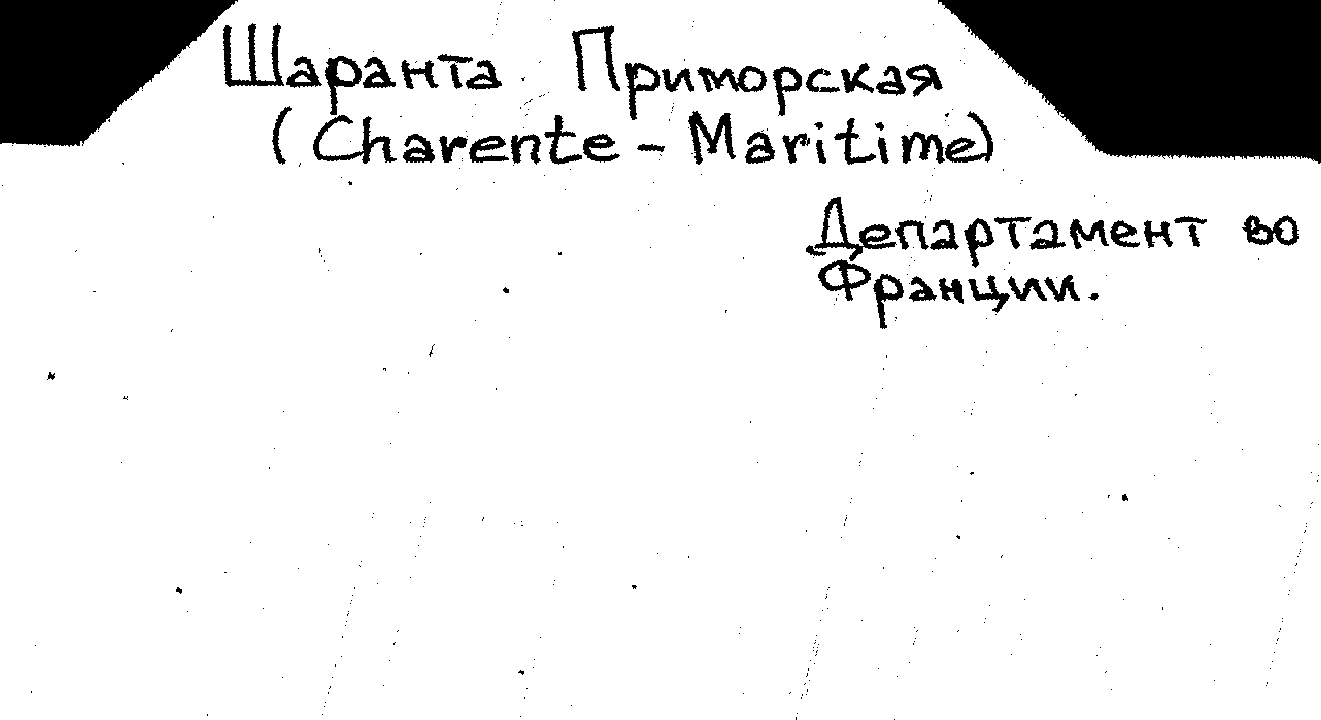 Шаранта Приморская
(Charente - Maritime)
Департамент во
Франции.